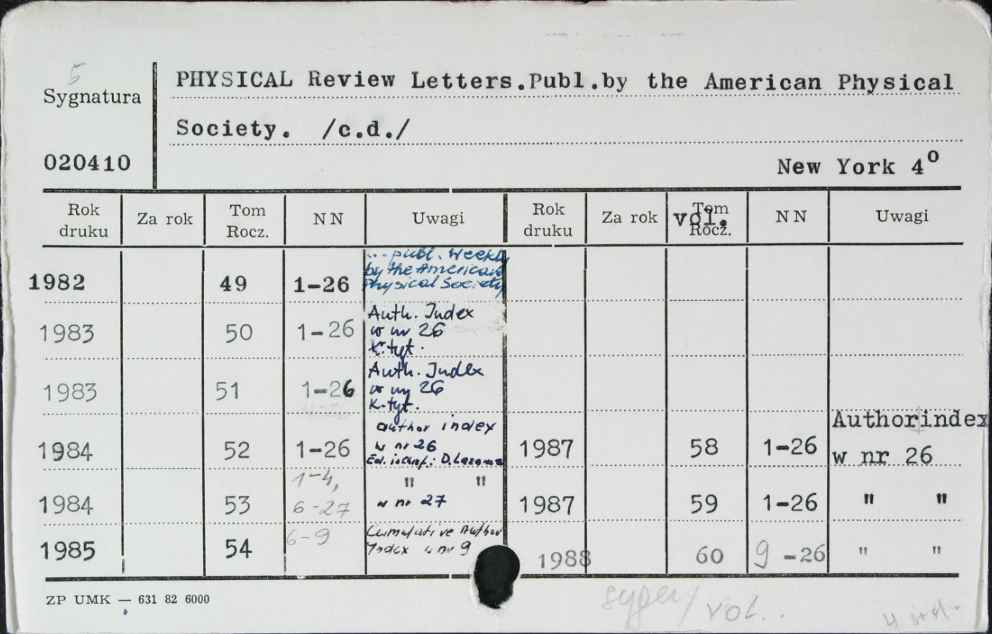 5
Sygnatura
020410
PHYSICAL Review Letters.Publ.by the American Physical
Society. /c.d./
New York 4º
Rok druku Za rok Tom Rocz. NN Uwagi Rok druku Za rok Tom Rocz. vol. NN Uwagi
1982 49 1-26 ... publ. weekly
by the American
Physical Society
1983 50 1-26 Auth. Index
w nr 26
K.tyt.
1983 51 1-26 Auth. Index
w nr 26
K.tyt.
1984 52 1-26 author index
w nr 26
1984 53 1-4,
6-27 " "
w nr 27
1985 54 6-9 Cumulative Author
Index w nr 9
1987 58 1-26 Authorindex
w nr 26
1987 59 1-26 " "
1988 60 9-26 " "
ZP UMK — 631 82 6000
vol..